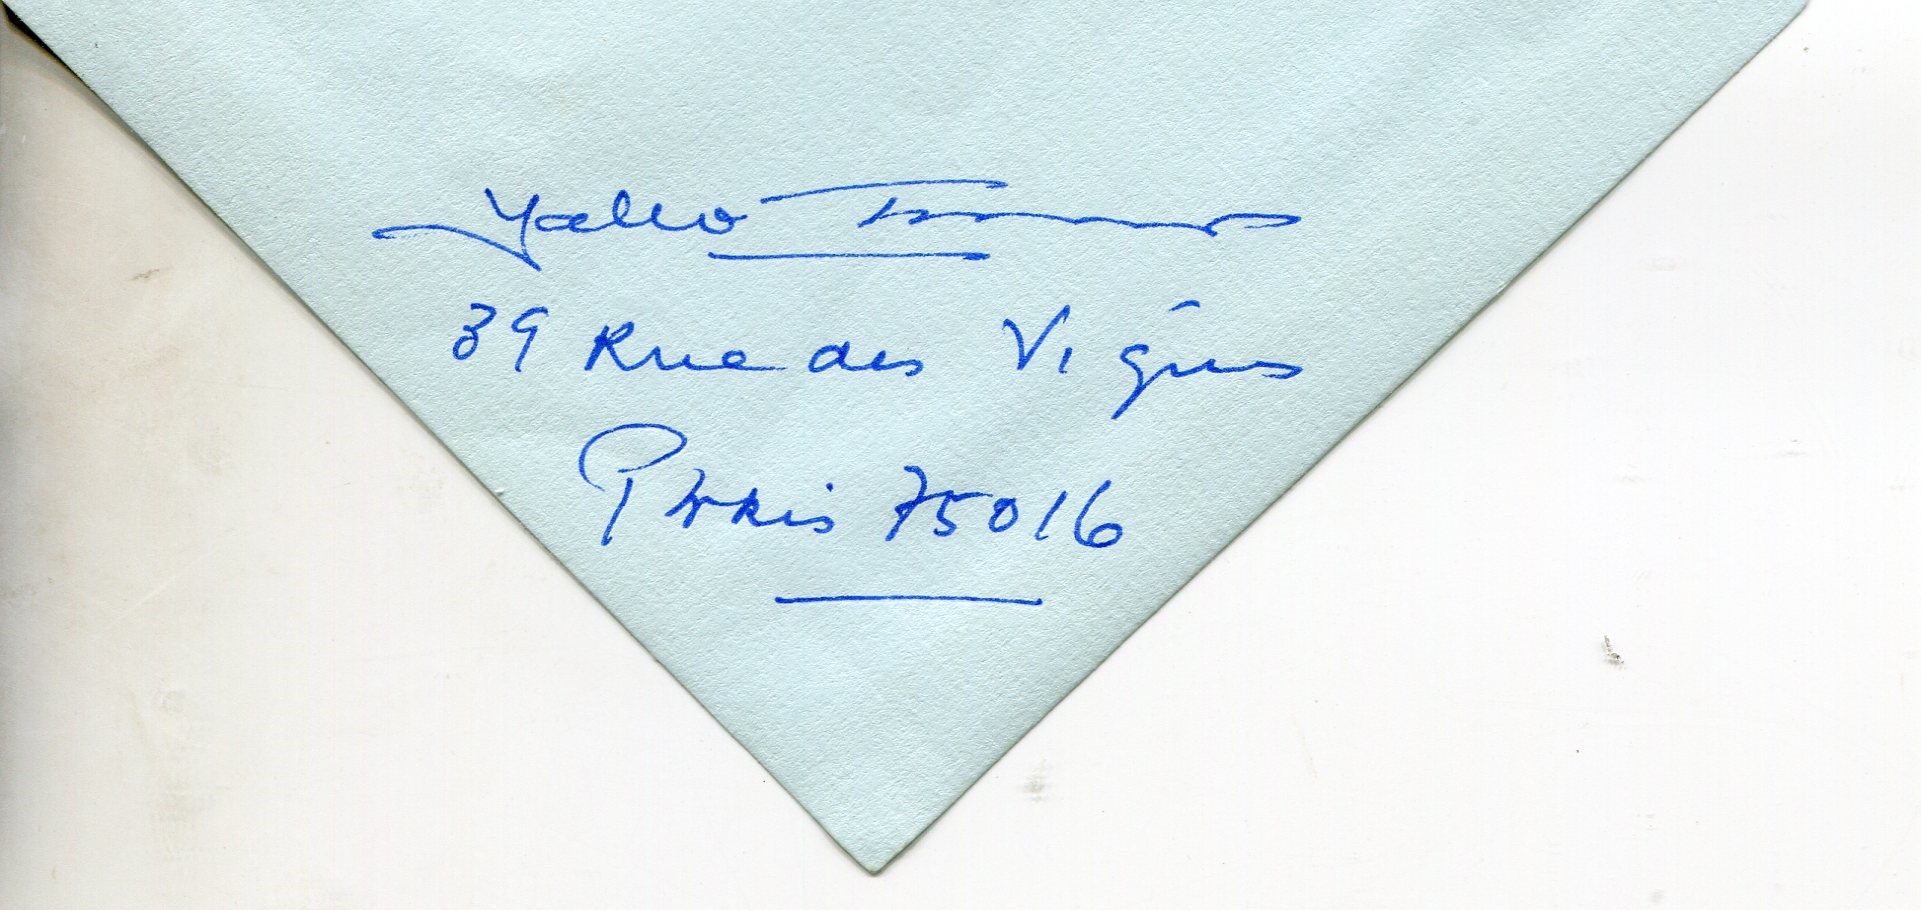 39 Rue des Vignes
Paris 75016